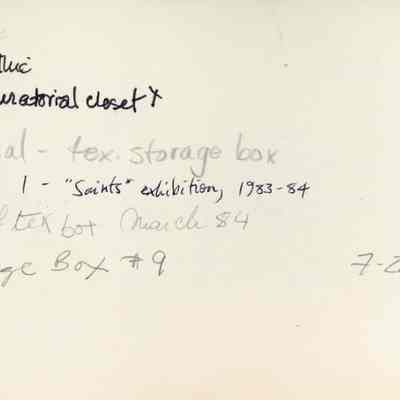 curatorial closet x
al - tex. storage box
1 - "Saints" exhibition, 1983-84
tex box March 84
ge Box #9 7-2